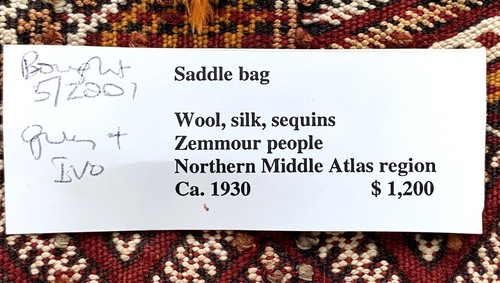 Bought
5/2001
+
Ivo
Saddle bag
Wool, silk, sequins
Zemmour people
Northern Middle Atlas region
Ca. 1930 $ 1,200